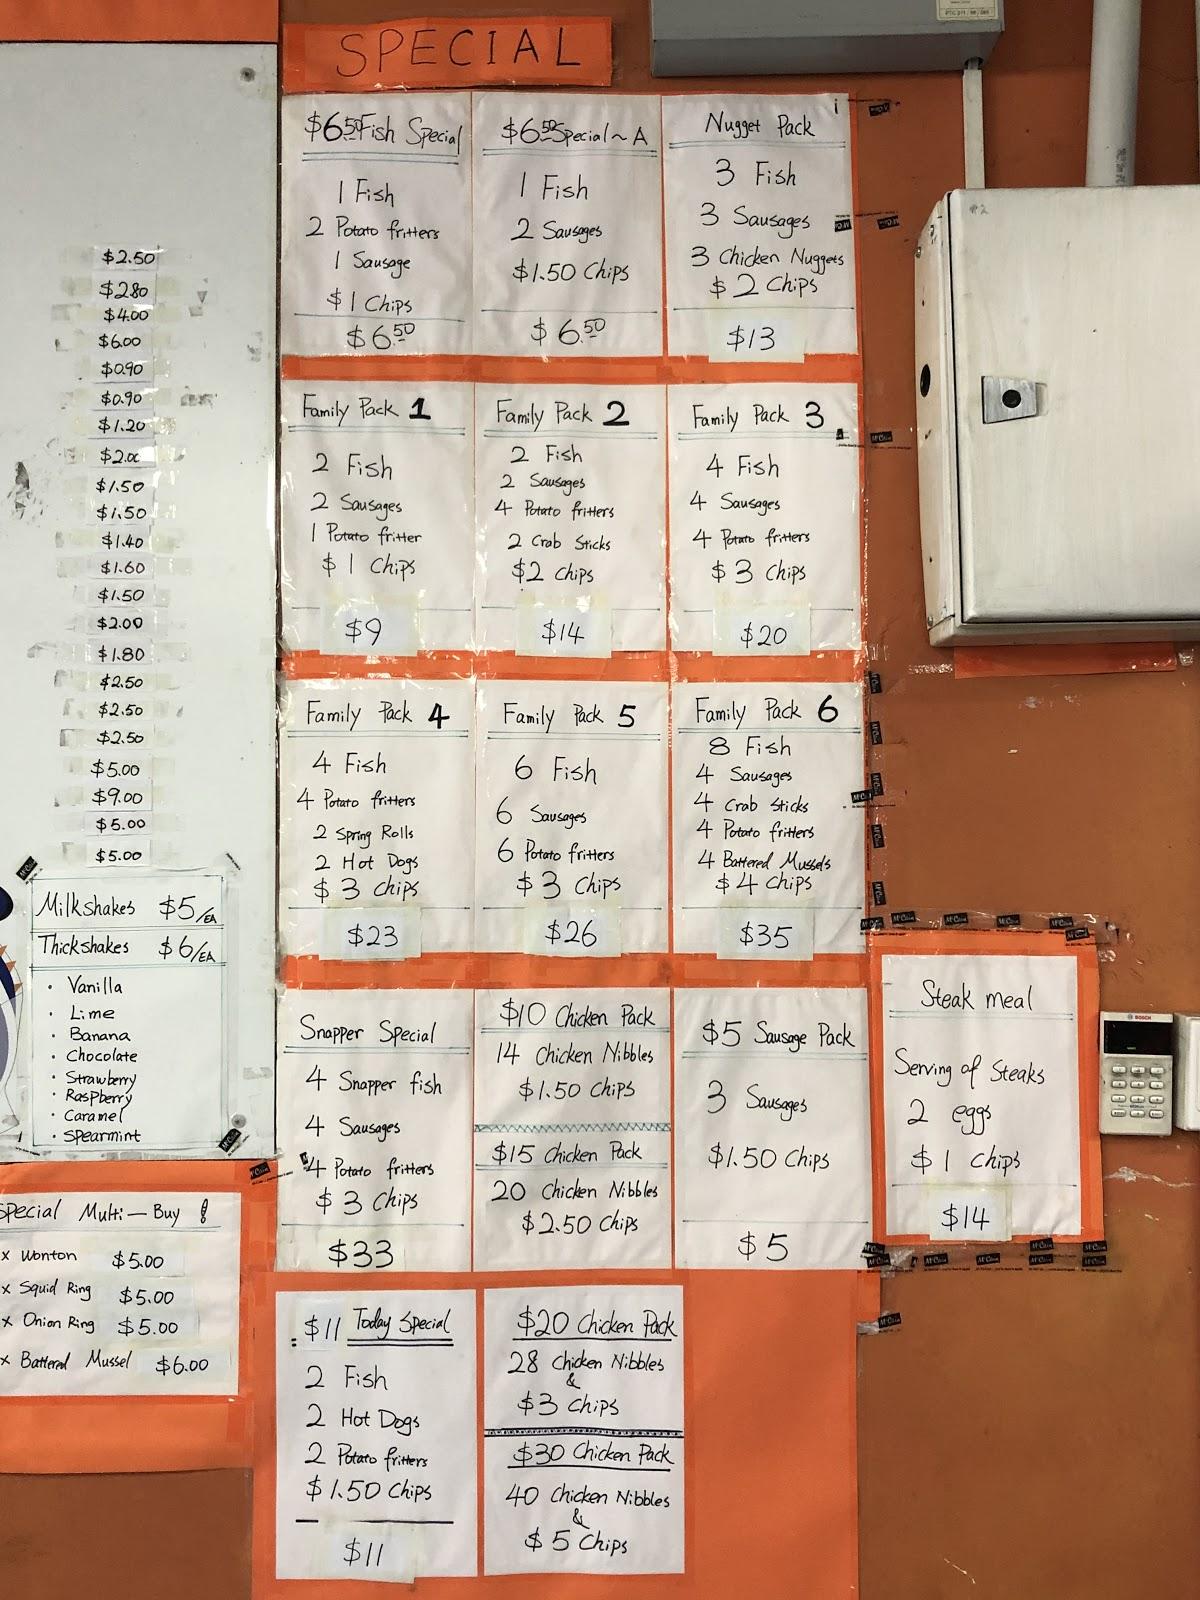 SPECIAL
$6.50 Fish Special
1 Fish
2 Potato fritters
1 Sausage
$1 Chips
$6.50
$6.50 Special ~ A
1 Fish
2 Sausages
$1.50 Chips
$6.50
Nugget Pack
3 Fish
3 Sausages
3 Chicken Nuggets
$2 Chips
$13
Family Pack 1
2 Fish
2 Sausages
1 Potato fritter
$1 Chips
$9
Family Pack 2
2 Fish
2 Sausages
4 Potato fritters
2 Crab Sticks
$2 Chips
$14
Family Pack 3
4 Fish
4 Sausages
4 Potato fritters
$3 Chips
$20
Family Pack 4
4 Fish
4 Potato fritters
2 Spring Rolls
2 Hot Dogs
$3 Chips
$23
Family Pack 5
6 Fish
6 Sausages
6 Potato fritters
$3 Chips
$26
Family Pack 6
8 Fish
4 Sausages
4 Crab Sticks
4 Potato fritters
4 Battered Mussels
$4 Chips
$35
Snapper Special
4 Snapper fish
4 Sausages
4 Potato fritters
$3 Chips
$33
$10 Chicken Pack
14 Chicken Nibbles
$1.50 Chips
$15 Chicken Pack
20 Chicken Nibbles
$2.50 Chips
$5 Sausage Pack
3 Sausages
$1.50 Chips
$5
Steak meal
Serving of Steaks
2 eggs
$1 Chips
$14
$11 Today Special
2 Fish
2 Hot Dogs
2 Potato fritters
$1.50 Chips
$11
$20 Chicken Pack
28 Chicken Nibbles
&
$3 Chips
$30 Chicken Pack
40 Chicken Nibbles
&
$5 Chips
$2.50
$2.80
$4.00
$6.00
$0.90
$0.90
$1.20
$2.00
$1.50
$1.50
$1.40
$1.60
$1.50
$2.00
$1.80
$2.50
$2.50
$2.50
$5.00
$9.00
$5.00
$5.00
Milkshakes $5/EA
Thickshakes $6/EA
• Vanilla
• Lime
• Banana
• Chocolate
• Strawberry
• Raspberry
• Caramel
• Spearmint
Special Multi—Buy !
x Wonton $5.00
x Squid Ring $5.00
x Onion Ring $5.00
x Battered Mussel $6.00
BOSCH